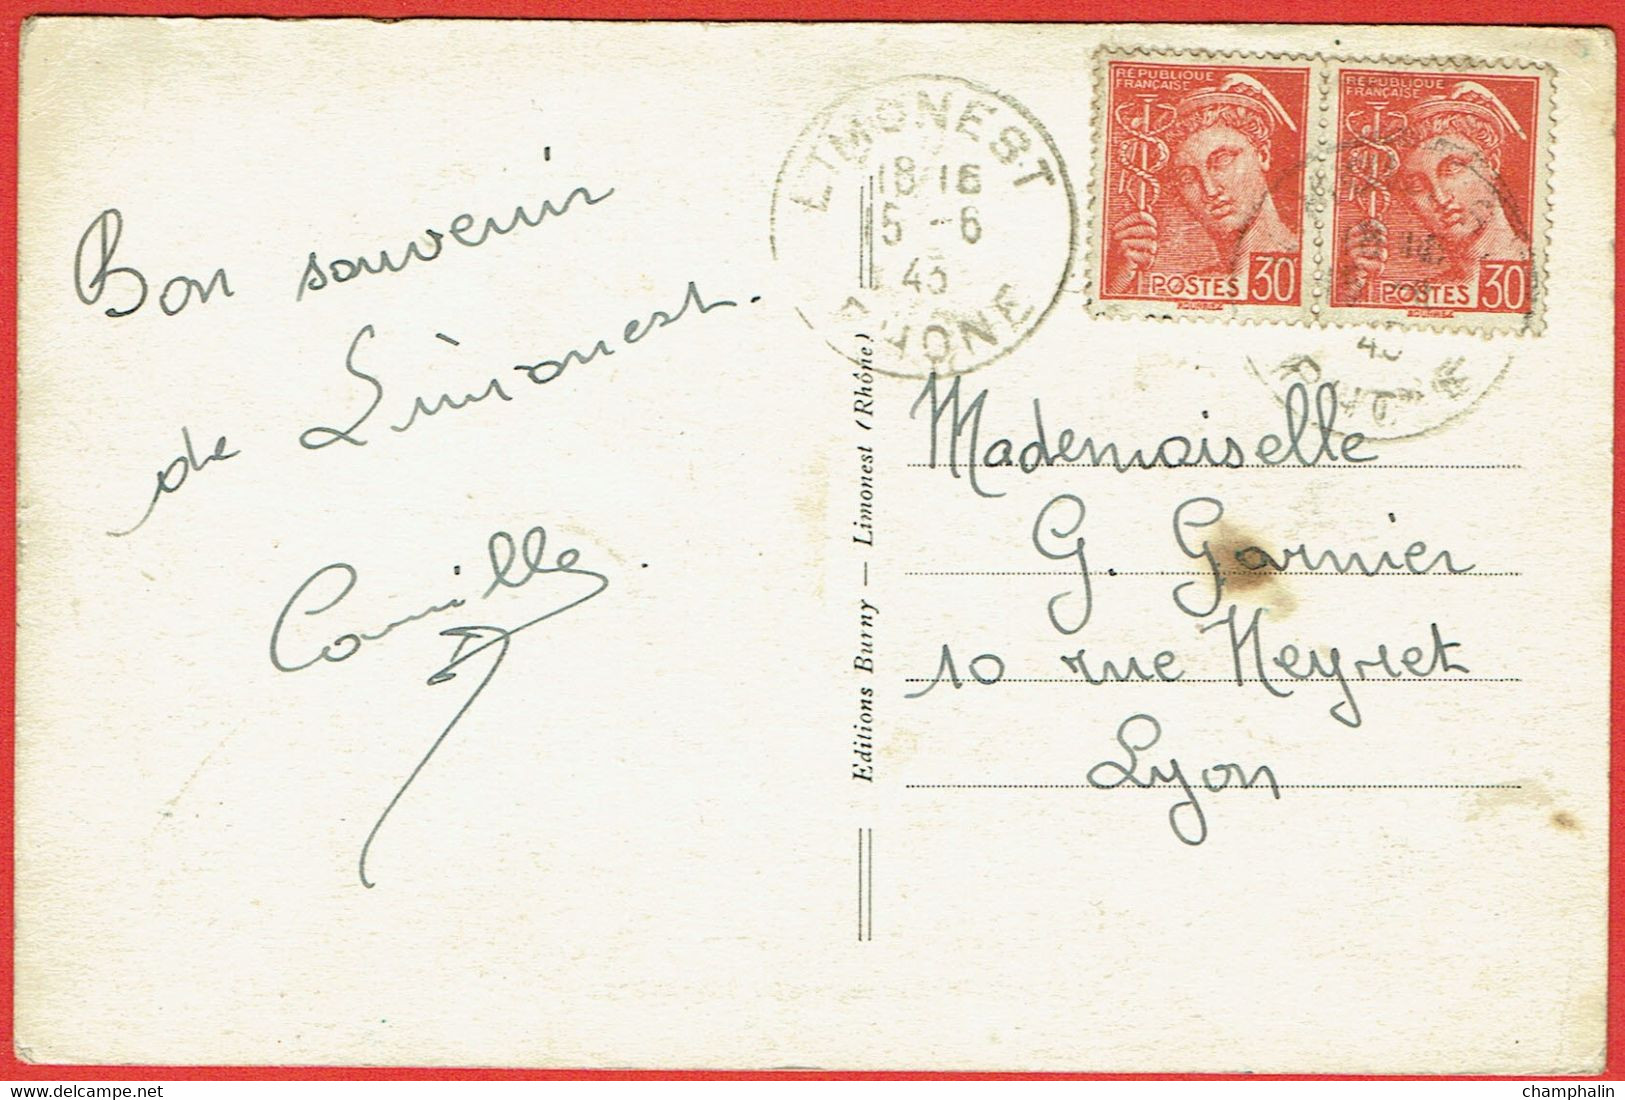 Bon souvenir
de Limonest.
Camille
LIMONEST
18·16
5 -6
43
RHONE
RÉPUBLIQUE
FRANÇAISE
POSTES 30
RÉPUBLIQUE
FRANÇAISE
POSTES 30
Editions Burny — Limonest (Rhône)
Mademoiselle
G. Garnier
10 rue Neyret
Lyon
delcampe.net
champhalin